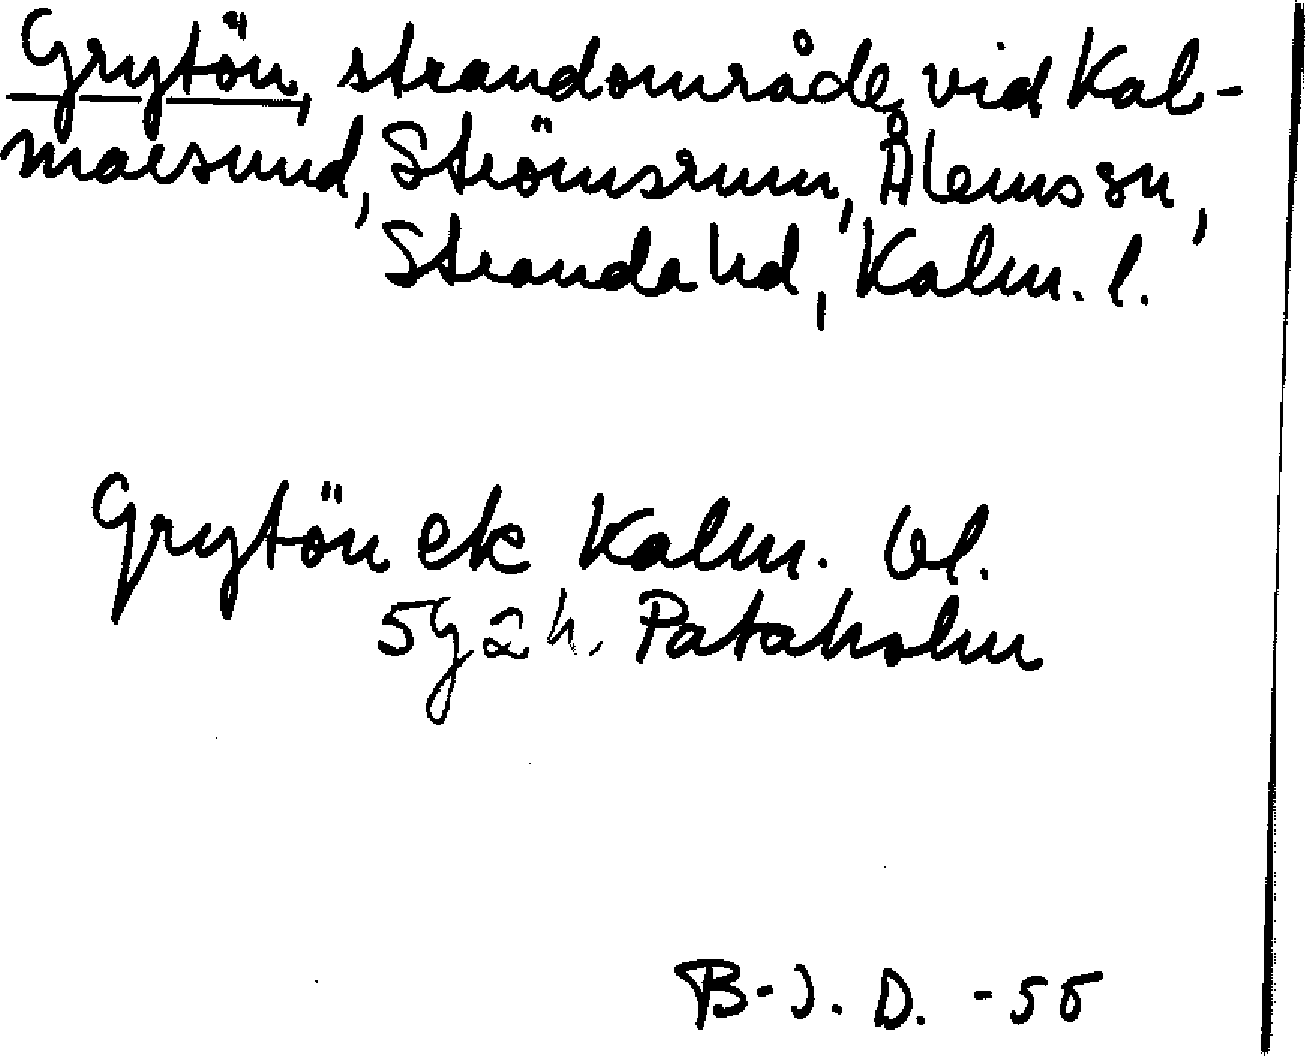 Grytön, strandområde vid Kal-
marsund, Strömsrum, Ålems sn,
Stranda hd, Kalm. l.
Grytön ek Kalm. bl.
5g2h. Pataholm
B-J. D. -55